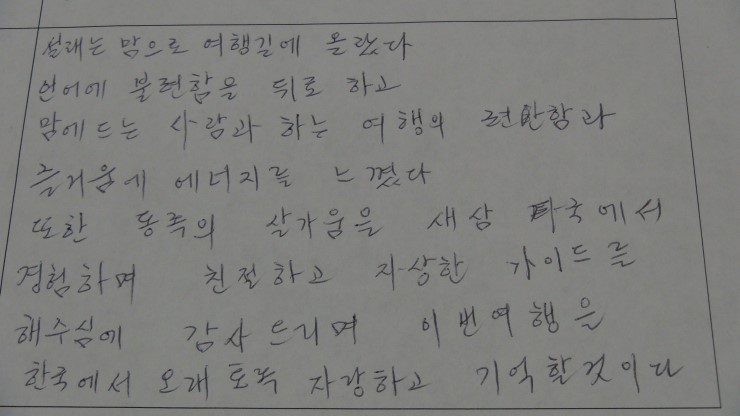 설래는 맘으로 여행길에 올랐다
언어에 불편함을 뒤로 하고
맘에 드는 사람과 하는 여행의 편안함과
즐거움에 에너지를 느꼈다
또한 동족의 살가움을 새삼 타국에서
경험하며 친절하고 자상한 가이드를
해주심에 감사 드리며 이번여행을
한국에서 오래토록 자랑하고 기억할것이다